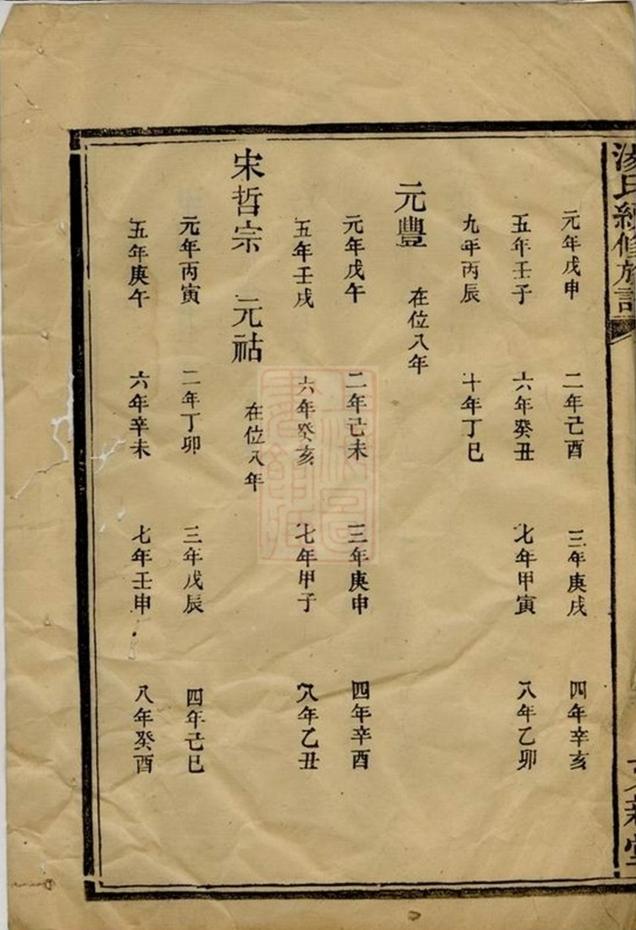 氏續修族譜
元年戊申 二年己酉 三年庚戌 四年辛亥
五年壬子 六年癸丑 七年甲寅 八年乙卯
九年丙辰 十年丁巳
元豐 在位八年
元年戊午 二年己未 三年庚申 四年辛酉
五年壬戌 六年癸亥 七年甲子 八年乙丑
宋哲宗 元祜 在位八年
元年丙寅 二年丁卯 三年戊辰 四年己巳
五年庚午 六年辛未 七年壬申 八年癸酉